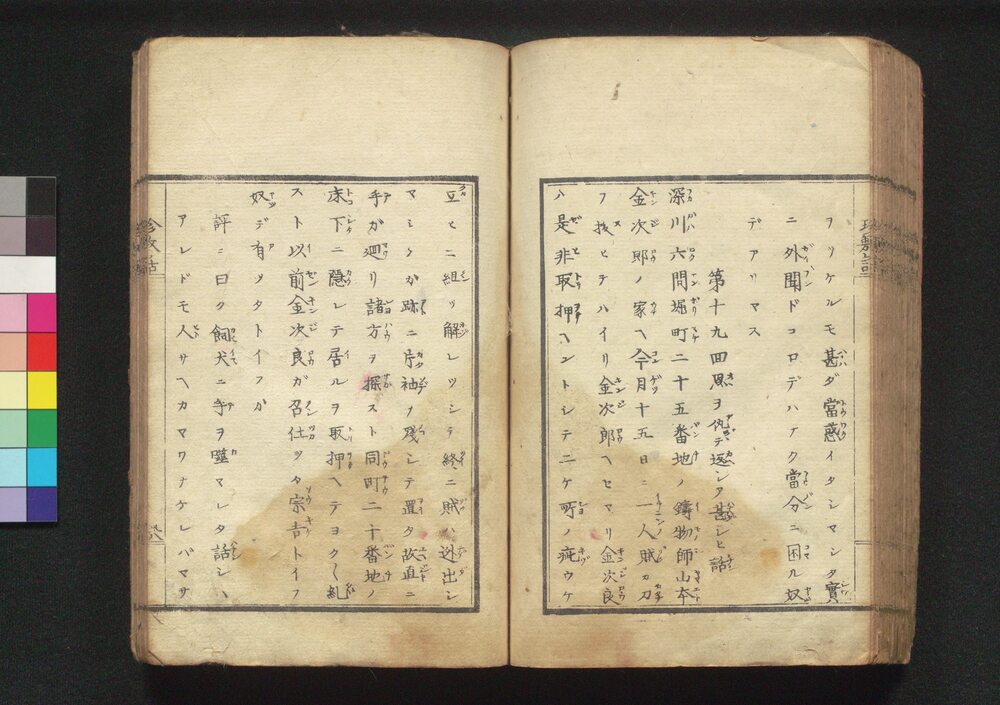 ヲツケルモ甚ダ當惑イタシマシタ實
ニ外聞ドコロデハナク當分ニ困ル奴
デアリマス
第十九回恩ヲ仇テ返シタ甚シヒ話
深川六間堀町二十五番地ノ鑄物師山本
金次郎ノ家ヘ今月十五日ニ一人賊カ刀
フ拔ヒテハイリ金次郎ヘセマリ金次良
ハ是非取押ヘントシテニケ所ノ疵ウケ
互ヒニ組ツ解レツシテ終ニ賊ハ迯出シ
マシタガ跡ニ片袖ノ残シテ置タ故直ニ
手ガ廻リ諸方ヲ探スト同町二十番地ノ
床下ニ隱レテ居ルヲ取押ヘテヨク〳〵糺
スト以前金次良ガ召仕ツタ宗吉トイフ
奴デ有ツタトイフガ
評ニ曰ク飼犬ニ手ヲ噬マレタ話シハ
アレドモ人サヘカマワナケレバマサ